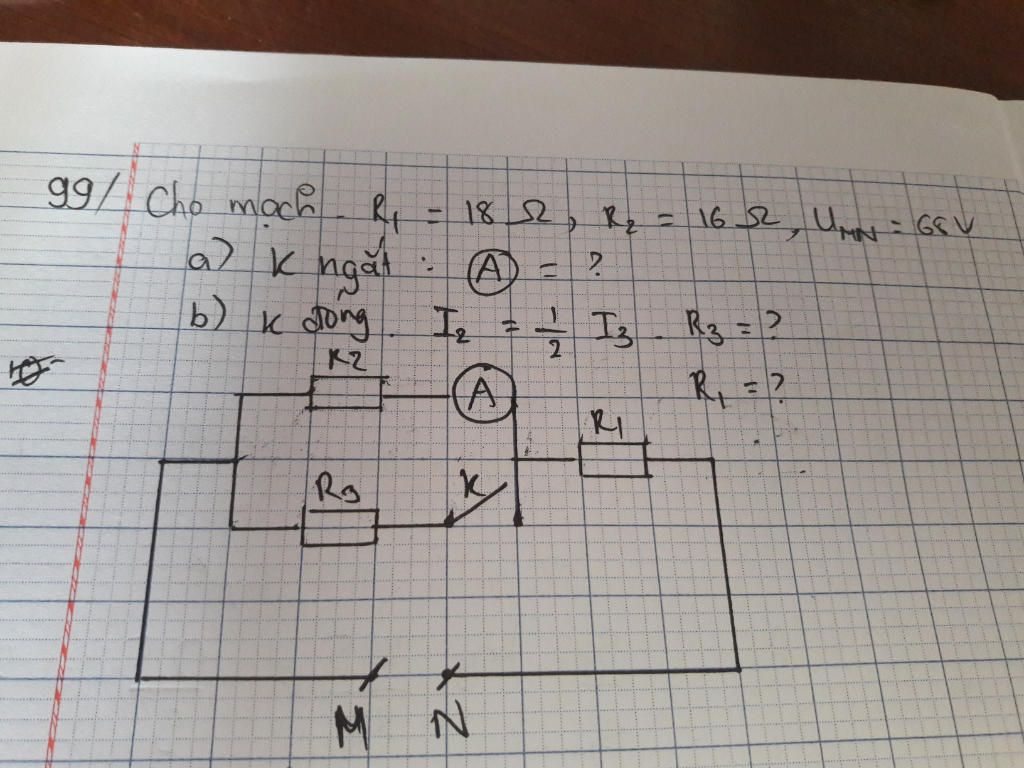 99/ Cho mạch. R1 = 18 Ω, R2 = 16 Ω, UMN = 68V
a) K ngắt : (A) = ?
b) K đóng. I2 = 1/2 I3. R3 = ?
R1 = ?
R2
A
R1
R3
K
M N